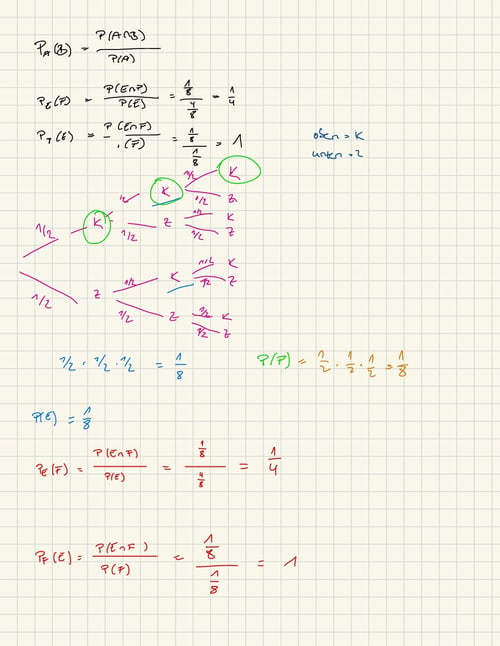 P_A(B) = P(A∩B) / P(A)
P_E(F) = P(E∩F) / P(E) = 1/8 / 4/8 = 1/4
P_F(E) = P(E∩F) / (F) = 1/8 / 1/8 = 1
oben = K
unten = Z
1/2 K 1/2 K 1/2 K
1/2 Z
1/2 Z 1/2 K
1/2 Z
1/2 Z 1/2 K 1/2 K
1/2 Z
1/2 Z 1/2 K
1/2 Z
1/2 · 1/2 · 1/2 = 1/8
P(F) = 1/2 · 1/2 · 1/2 = 1/8
P(E) = 4/8
P_E(F) = P(E∩F) / P(E) = 1/8 / 4/8 = 1/4
P_F(E) = P(E∩F) / P(F) = 1/8 / 1/8 = 1